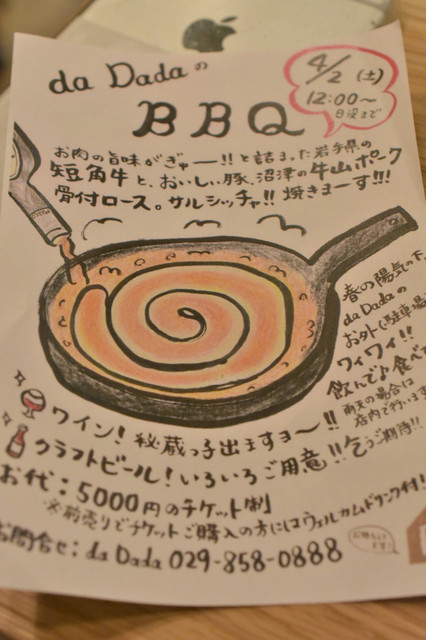 da Dadaの
BBQ
4/2(土)
12:00〜
日没まで
お肉の旨味がぎゅー!!と詰まった岩手県の
短角牛と、おいしい豚、沼津の牛山ポーク
骨付ロース。サルシッチャ!! 焼きまーす!!!
春の陽気の下、
da Dadaの
お外(駐車場
ワイワイ!!
飲んで♪食べて
雨天の場合は
店内で行います
乞うご期待!!
ワイン!秘蔵っ子出ますョ〜!!
クラフトビール!いろいろご用意!!
お代:5000円のチケット制
※前売りでチケットご購入の方にはウェルカムドリンク付!
お問合せ:da Dada 029-858-0888